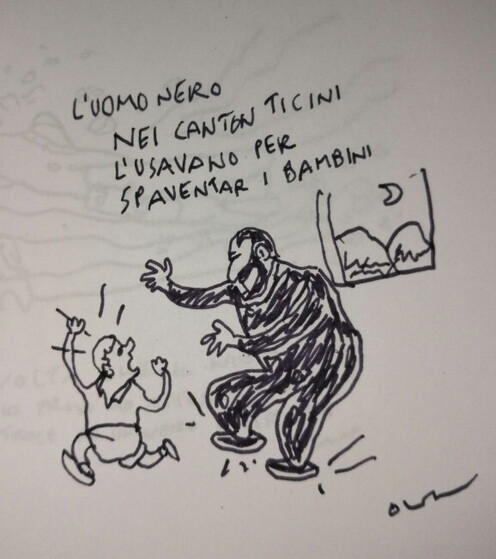 L'UOMO NERO
NEI CANTON TICINI
L'USAVANO PER
SPAVENTAR I BAMBINI